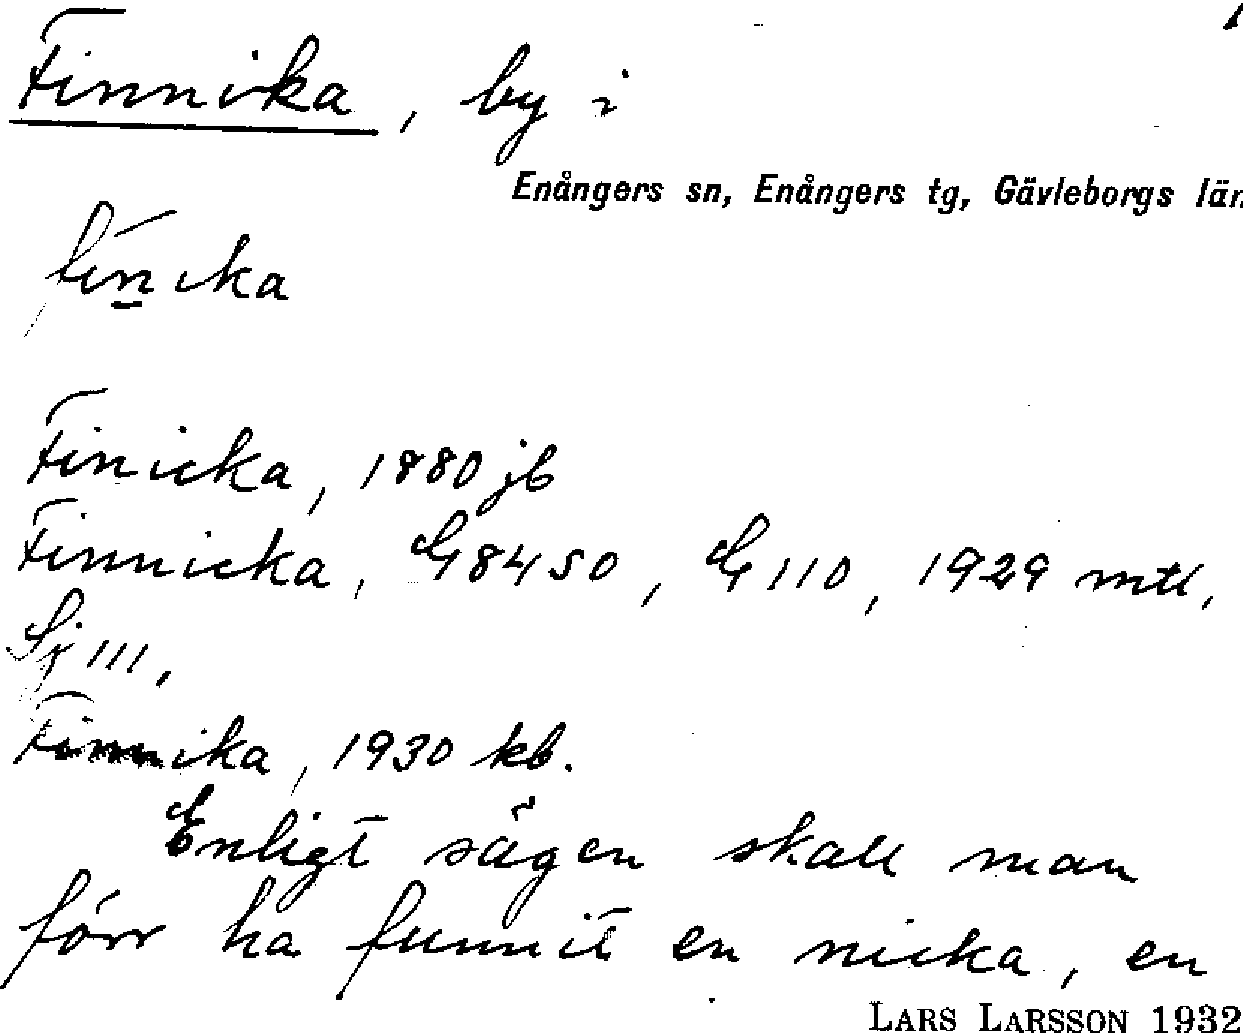 Finnika, by i
Enångers sn, Enångers tg, Gävleborgs län
Finicka, 1880 jb
Finnicka, G 84 SO, G 110, 1929 mtl,
Sj III,
Finnika, 1930 kb.
Enligt sägen skall man
förr ha funnit en nicka, en
LARS LARSSON 1932